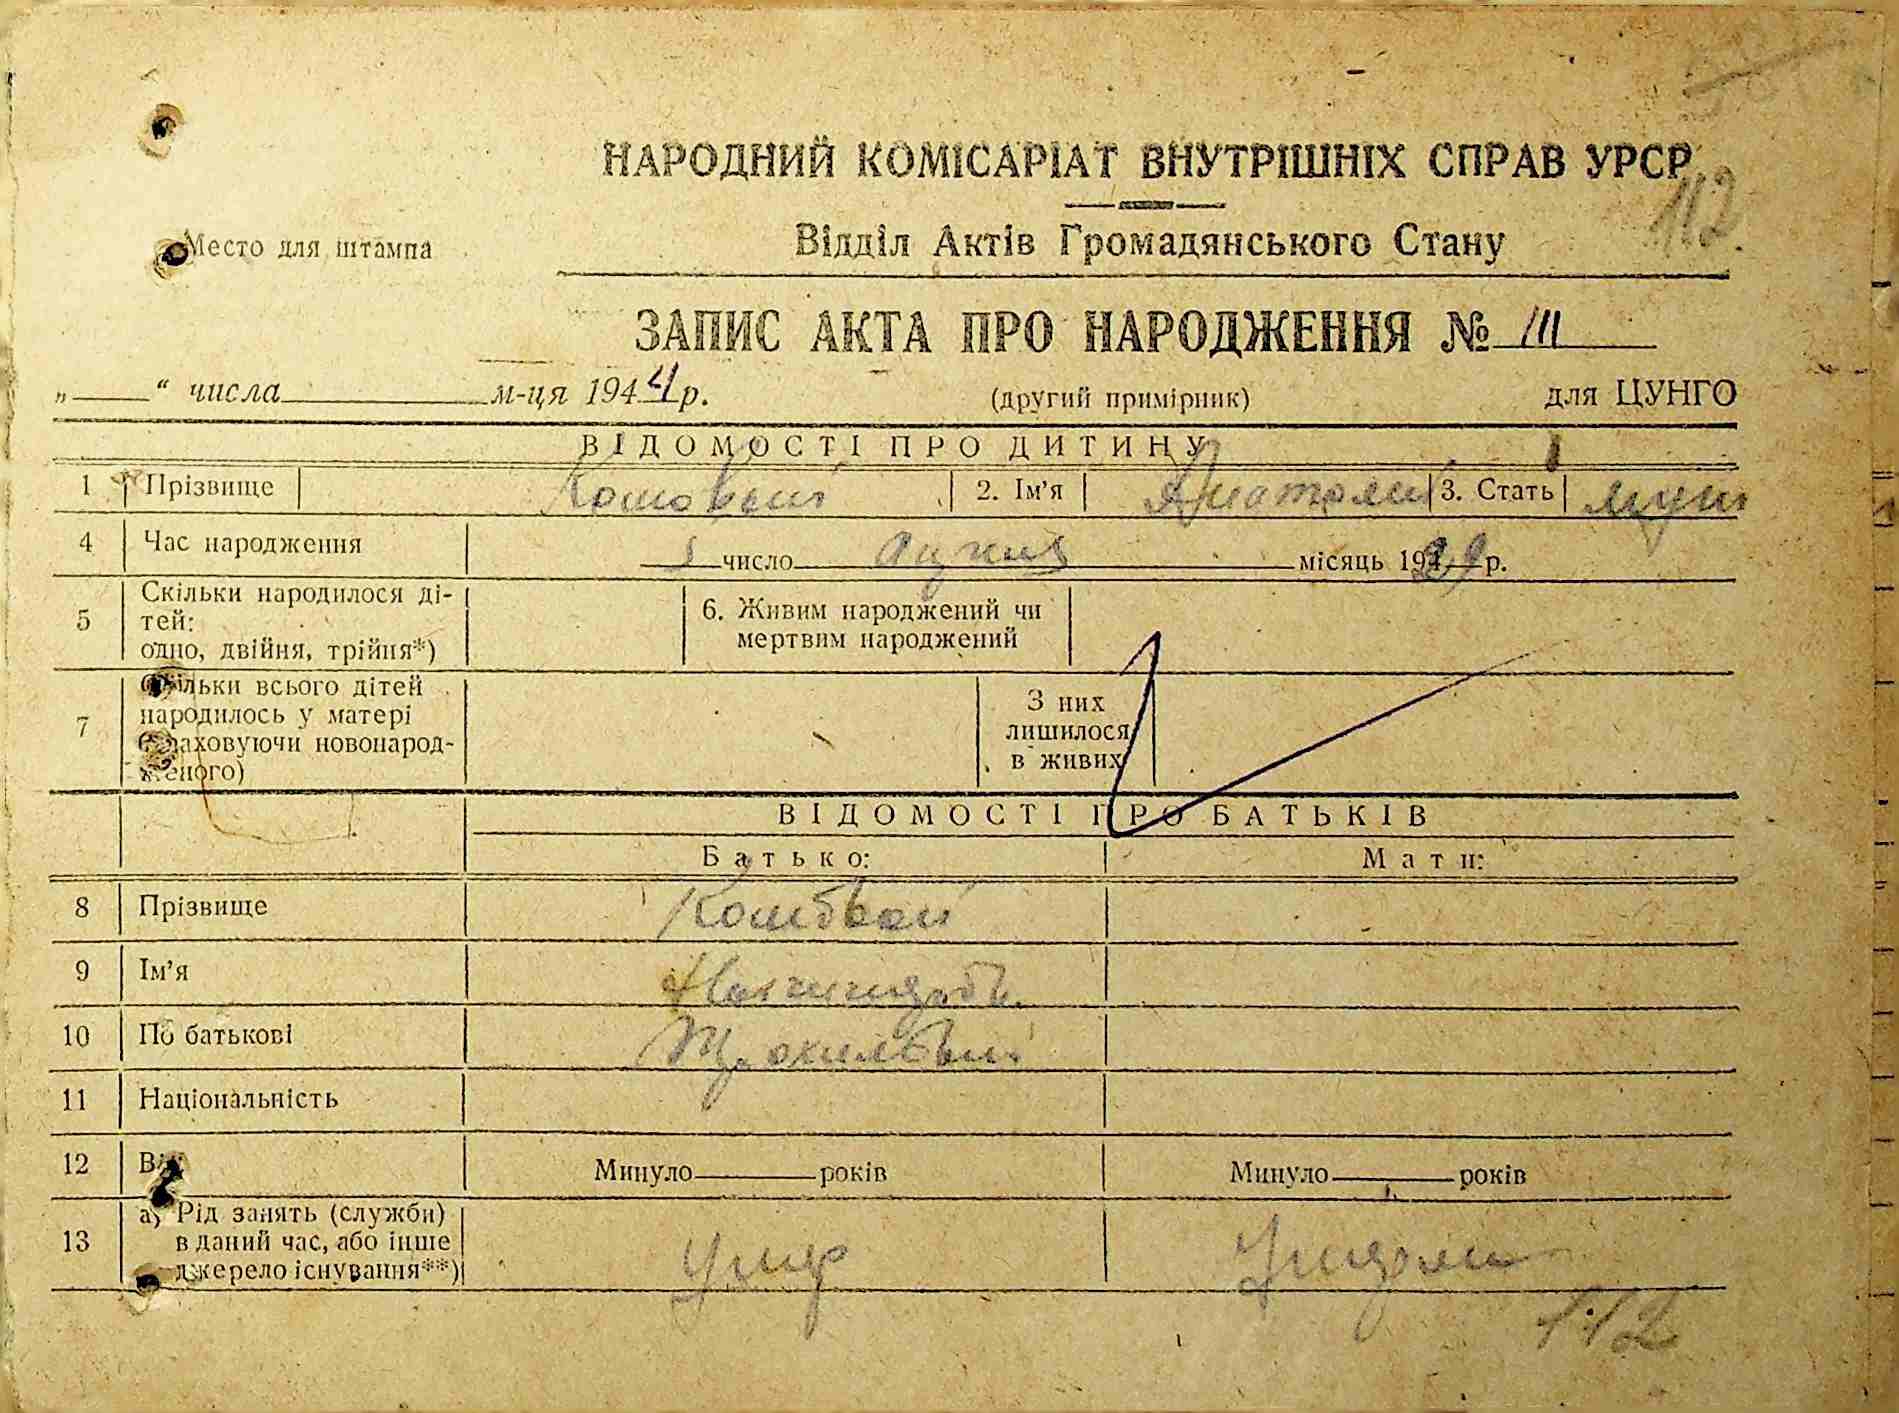 112
НАРОДНИЙ КОМІСАРІАТ ВНУТРІШНІХ СПРАВ УРСР
Место для штампа
Відділ Актів Громадянського Стану
ЗАПИС АКТА ПРО НАРОДЖЕННЯ № 111
„ “ числа м-ця 1944 р. (другий примірник) для ЦУНГО
ВІДОМОСТІ ПРО ДИТИНУ
1 Прізвище 2. Ім’я Анатолий 3. Стать муж
4 Час народження число місяць 194 р.
5 Скільки народилося ді-
тей:
одно, двійня, трійня*)
6. Живим народжений чи
мертвим народжений
7 Скільки всього дітей
народилось у матері
(враховуючи новонарод-
женого)
З них
лишилося
в живих
ВІДОМОСТІ ПРО БАТЬКІВ
Батько: Мати:
8 Прізвище
9 Ім’я
10 По батькові
11 Національність
12 Вік Минуло років Минуло років
13 а) Рід занять (служби)
в даний час, або інше
джерело існування**)
112